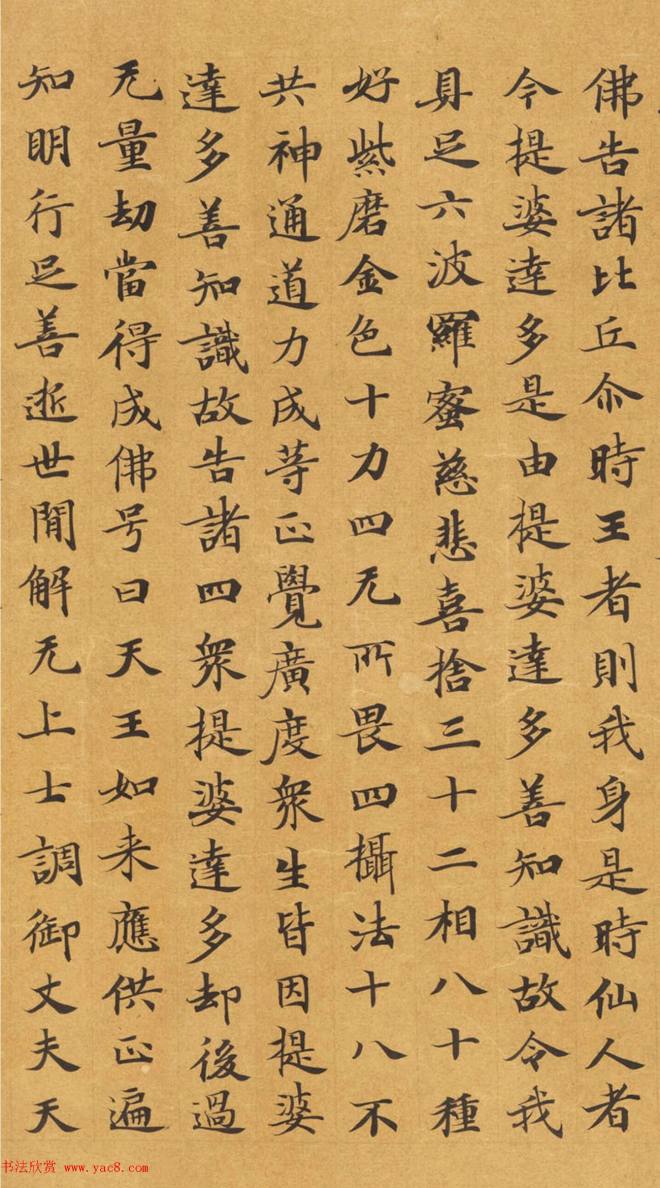 佛告諸比丘尒時王者則我身是時仙人者
今提婆達多是由提婆達多善知識故令我
具足六波羅蜜慈悲喜捨三十二相八十種
好紫磨金色十力四无所畏四攝法十八不
共神通道力成等正覺廣度衆生皆因提婆
達多善知識故告諸四衆提婆達多却後過
无量劫當得成佛号曰天王如来應供正遍
知明行足善逝世間解无上士調御丈夫天
书法欣赏 www.yac8.com